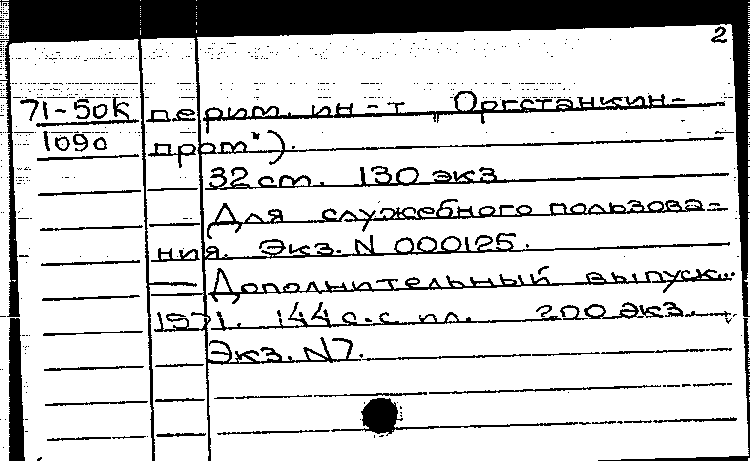 2
71-50к перим. ин-т „Оргстанкин-
1090 пром").
32 ст. 130 экз.
Для служебного пользова-
ния. Экз. N 000125.
— Дополнительный выпуск.
1971. 144 с.с ил. 200 экз.
Экз. N7.